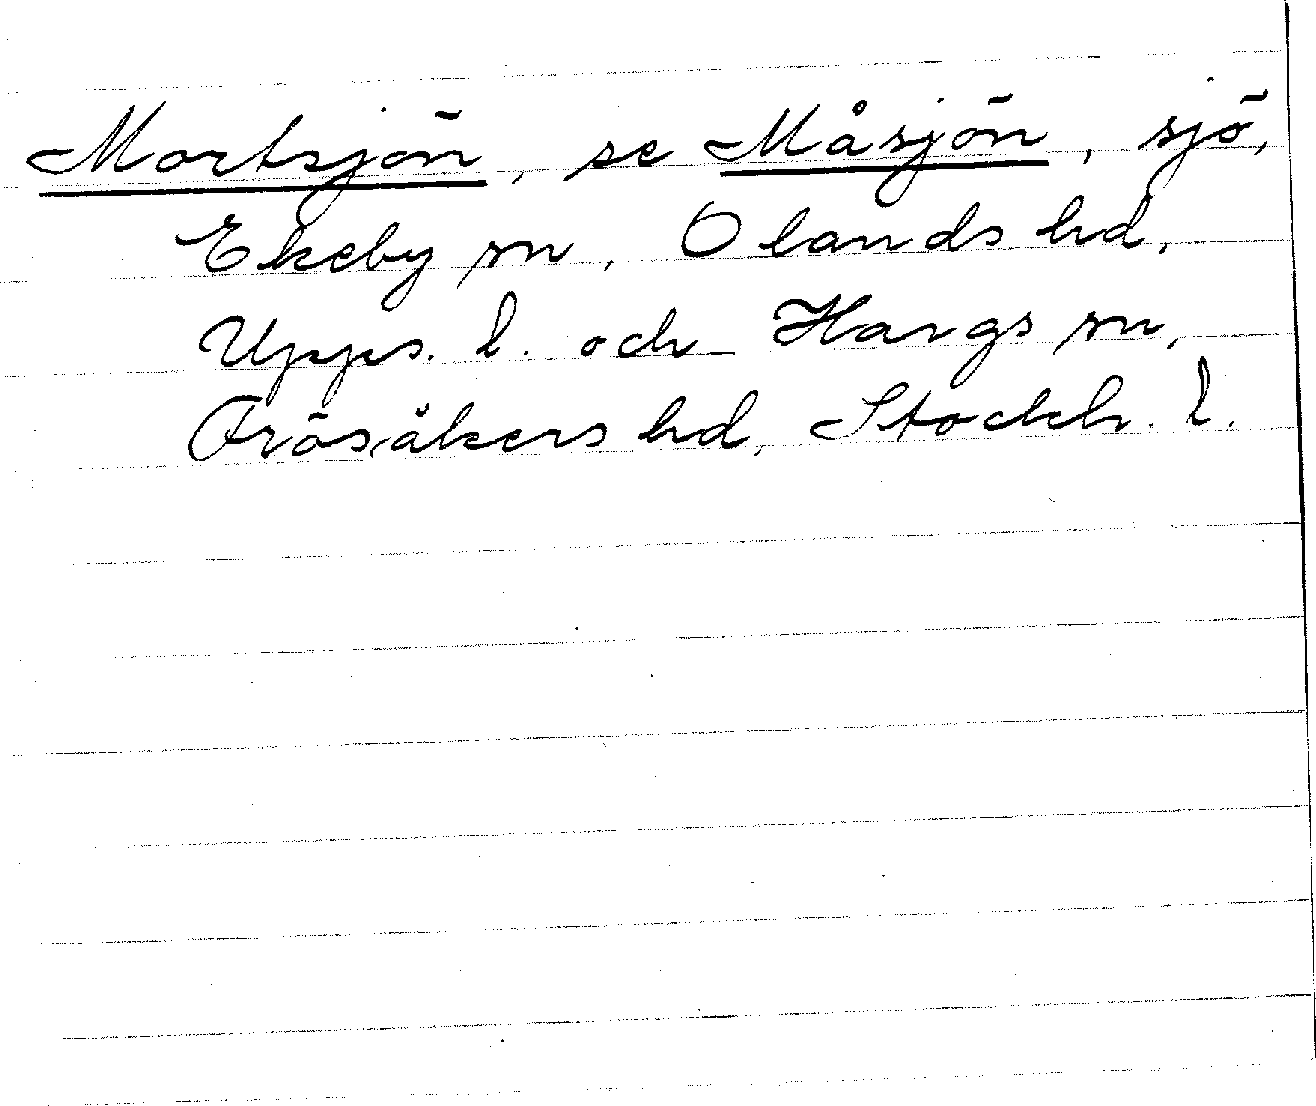 Mortsjön, se Måsjön, sjö,
Ekeby sn, Olands hd,
Upps. l. och Hargs sn,
Frösåkers hd, Stockh. l.